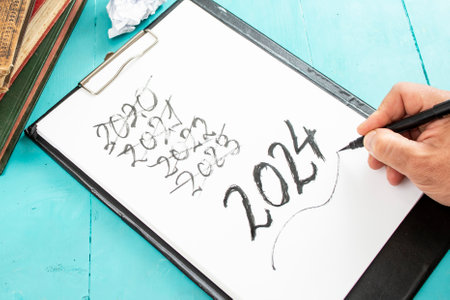 2020
2021
2022
2023
2024